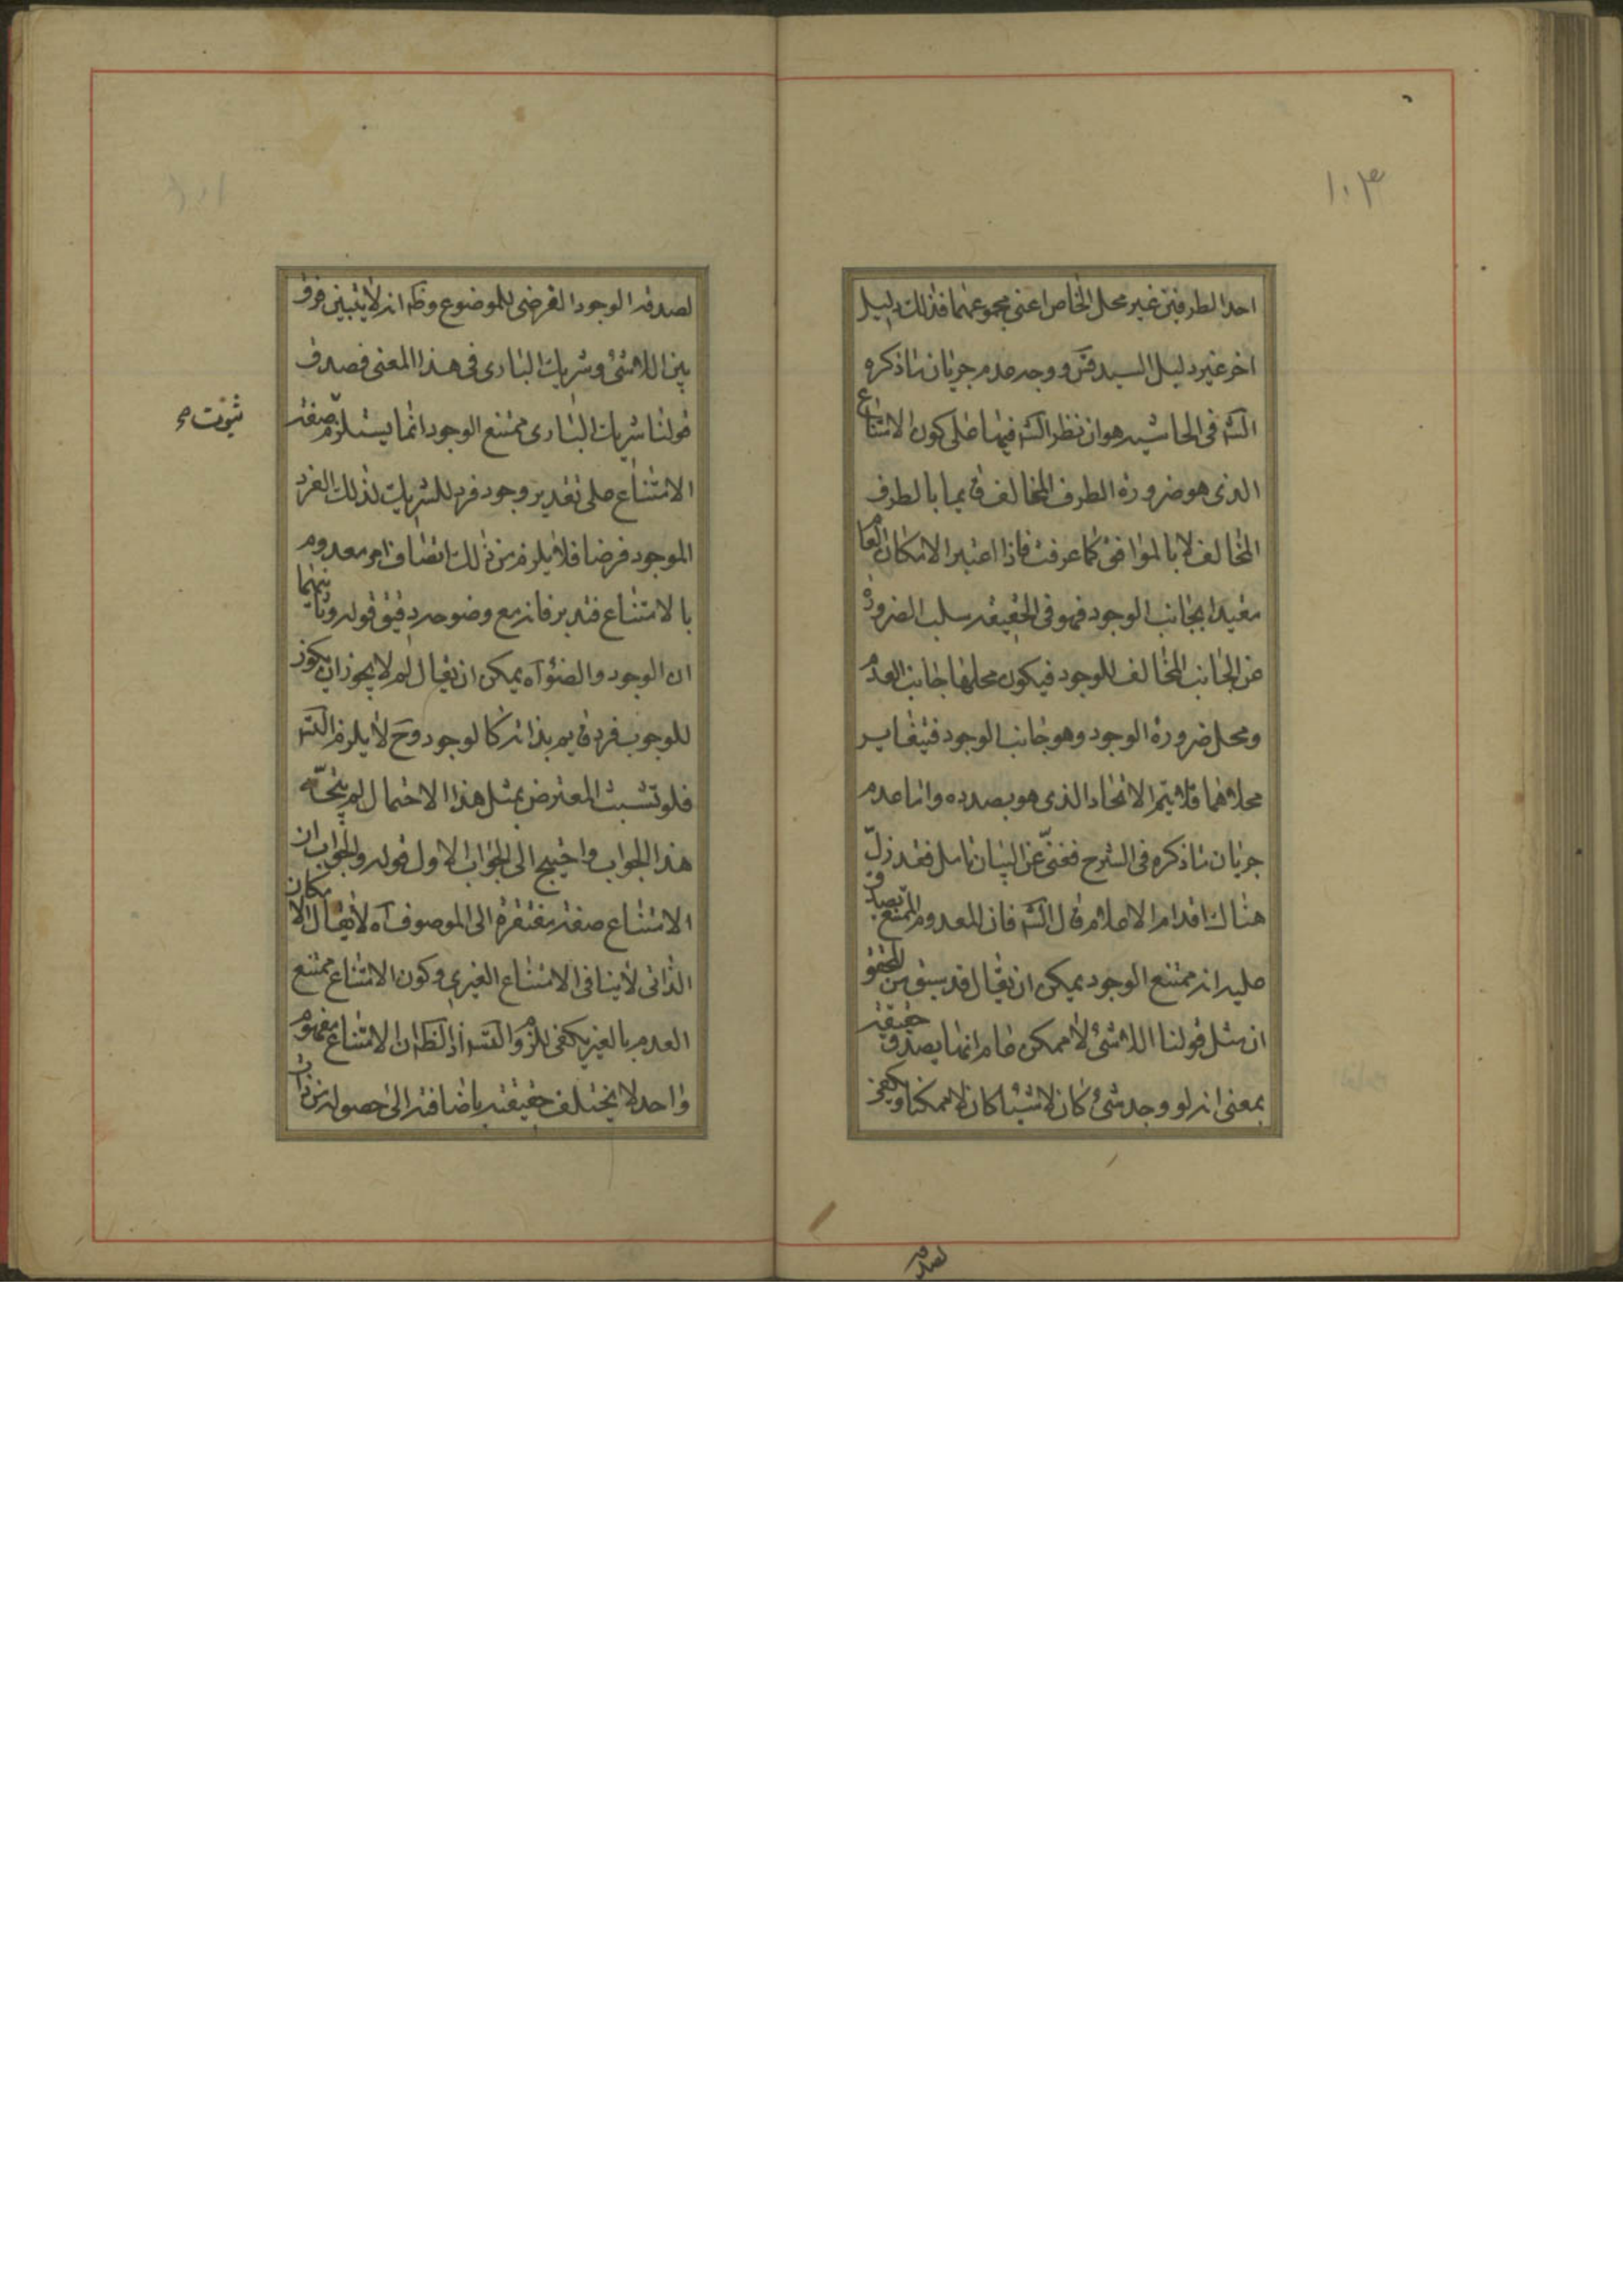 ١٠٣
احد الطرفين غير محل الخاص اعنى مجموعهما فذلك دليل
اخر غير دليل السيد قس و وجه عدم جريان ما ذكره
الشه فى الحاشيه هو ان نظر الشه فيها على كون الامتناع
الذى هو ضرورة الطرف المخالف قايما بالطرف
المخالف لا بالموافق كما عرفت فاذا اعتبر الامكان العام
مقيدا بجانب الوجود فهو فى الحقيقه سلب الضرورة
عن الجانب المخالف للوجود فيكون محلها جانب العدم
ومحل ضرورة الوجود وهو جانب الوجود فيتغاير
محلاهما فلا يتم الاتحاد الذى هو بصدده واما عدم
جريان ما ذكره فى الشرح فغنى عن البيان تامل فقد زلّ
هناك اقدام الاعلام قال الشه فان المعدوم الممتع يصدق
عليه انه ممتنع الوجود يمكن ان يقال قد سبق من المحقق
ان مثل قولنا اللاشئ لا ممكن عام انما يصدق حقيقة
بمعنى انه لو وجد شئ كان لا شيئا كان لا ممكنا ويكفى
لصدقه
لصدقه الوجود الفرضى للموضوع وظه انه لا يتبين فرق
بين اللاشئ وشريك البارى فى هذا المعنى فصدق
قولنا شريك البارى ممتنع الوجود انما يستلزم صفة
ثبوت صح
الامتناع على تقدير وجود فرد للشريك لذلك الفرد
الموجود فرضا فلا يلزم من ذلك اتصاف امر معدوم
بالامتناع فتدبر فانه مع وضوحه دقيق قوله وثانيهما
ان الوجود والضوء آه يمكن ان يقال لم لا يجوز ان يكون
للوجوب فرد قايم بذاته كالوجود وح لا يلزم التسه
فلو تشبث المعترض بمثل هذا الاحتمال لم يتجه
هذا الجواب واحتيج الى الجواب الاول قوله والجواب ان
الامتناع صفة مفتقرة الى الموصوف آه لا يقال الامكان
الذاتى لا ينافى الامتناع الغيرى وكون الامتناع ممتنع
العدم بالغير يكفى للزوم التسه اذ الظه ان الامتناع مفهوم
واحد لا يختلف حقيقته باضافته الى حصوله من ذات